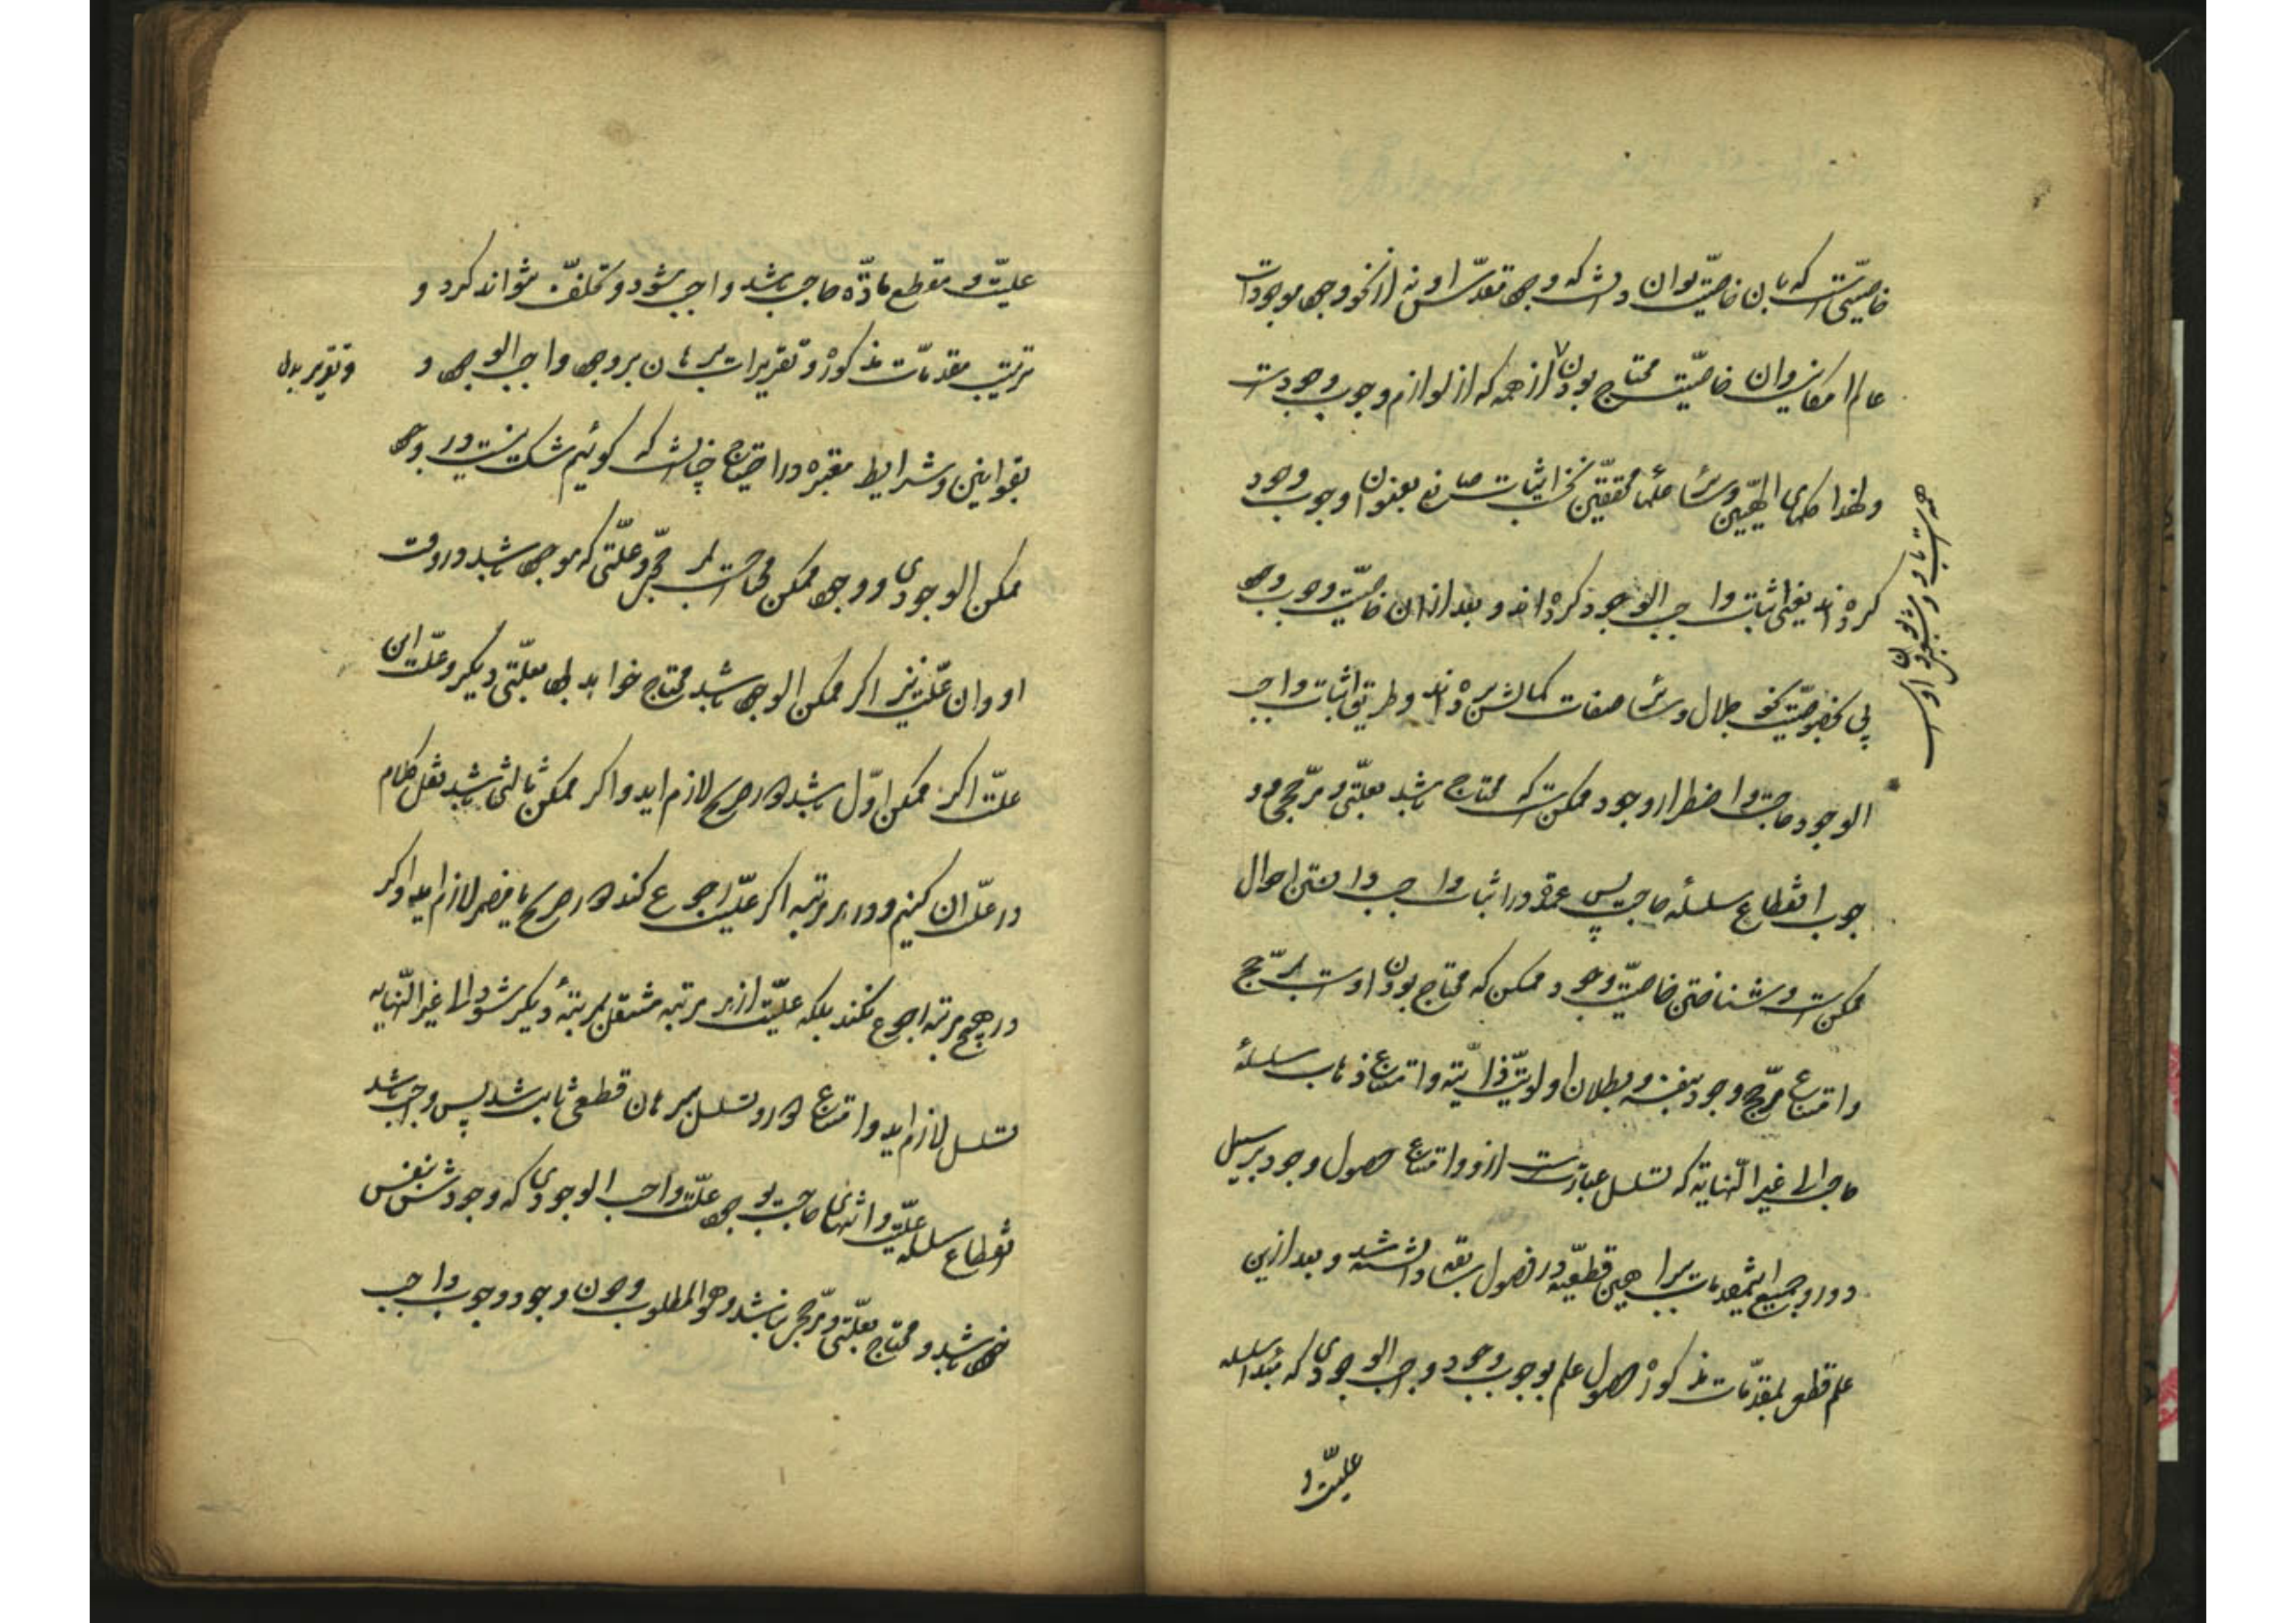 خاصیتی است که بآن خاصیت توان دانست که وجود مقدس او نه از نحو وجود موجودات
عالم امکانیست وان خاصیت محتاج بودن از همه که از لوازم وجوب وجودست
ولهذا حکمای الهیین وسائر علمای محققین نخست اثبات صانع بعنوان وجوب وجود
کرده اند یعنی اثبات واجب الوجود کرده اند و بعد از ان خاصیت وجوب وجود
پی بخصوصیت نحو جلال وسائر صفات کمالش برده اند وطریق اثبات واجب
الوجود حاجت واضطرار وجود ممکن است که محتاج باشد بعلتی ومرجحی و
جوب انقطاع سلسلهٔ حاجت پس عمده در اثبات واجب دانستن احوال
ممکن است وشناختن خاصیت وجود ممکن که محتاج بودن اوست بمرجح
وامتناع ترجح وجود بنفسه وبطلان اولویت ذاتیه وامتناع ذهاب سلسلهٔ
حاجت الی غیر النهایة که تسلسل عبارتست ازو وامتناع حصول وجود بر سبیل
دور وجمیع این مقدمات ببراهین قطعیه در فصول سابقه دانسته شد وبعد ازین
علم قطعی بمقدمات مذکوره حصول علم بوجوب وجود واجب الوجودی که مبدأ سلسلهٔ
علیت و
علیت و مقطع مادهٔ حاجت باشد واجب شود وتخلف نتواند کرد و
ترتیب مقدمات مذکوره وتقریرات برهان بر وجود واجب الوجود و
وتقریر بدل
بقوانین وشرایط معتبره در احتجاج چنانست که گوئیم شک نیست در وجود
ممکن الوجودی و وجود ممکن محتاجست بمرجح وعلتی که موجود باشد در وقت
او وان علت نیز اگر ممکن الوجود باشد محتاج خواهد بود بعلتی دیگر وعلت این
علت اگر ممکن اول باشد دور صریح لازم اید واگر ممکن ثالثی باشد نقل کلام
در علت ان کنیم ودر هر مرتبه اگر علیت رجوع کند دور صریح یا مضمر لازم اید واگر
در هیچ مرتبه رجوع نکند بلکه علیت از هر مرتبه منتقل بمرتبهٔ دیگر شود الی غیر النهایه
تسلسل لازم اید وامتناع دور وتسلسل ببرهان قطعی ثابت شد پس واجب باشد
انقطاع سلسله علیت وانتهای حاجت بوجود علت واجب الوجودی که وجودش بنفس
خود باشد و محتاج بعلتی ومرجحی نباشد وهو المطلوب وچون وجود وجوب واجب